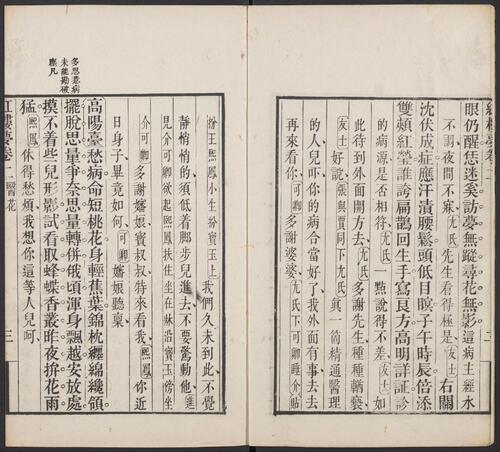 紅樓夢卷二
眼仍醒恁迷奚訪夢無蹤尋花無影這病土經水
不調夜間不寐尤氏先生看得極是友士右關
沈伏成症應汗漬腰鬆頭低目瞑子午時辰倍添
雙頰紅瑩誰誇扁鵲回生手寫良方高明詳証診
的病源是否相符尤氏一點說得不差友士如
此待到外面開方去尤氏多謝先生種種鞧褻
友士好說張與賈同下尤氏真一箇精通醫理
的人兒吓你的病合當好了我外面有事去去
再來看你可卿多謝婆婆尤氏下可卿睡介貼
扮王熙鳳小生扮寶玉上我們久未到此不覺
靜悄悄的須低着脚步兒進去不要驚動他進
見介可卿欲起熙鳳扶住坐在牀沿寶玉傍坐
介可卿多謝嬸娘寶叔叔特來看我熙鳳你近
日身子畢竟如何可卿嬸娘聽稟
高陽臺愁病命短桃花身輕蕉葉錦枕纒綿纔領
擺脫思量爭奈思量轉併俄頃渾身飄越安放處
摸不着些兒形影試看取蜂蝶香叢昨夜拚花雨
猛熙鳳休得愁煩我想你這等人兒呵
多思惹病
未能勘破
塵凡
紅樓夢卷二 醫花 三